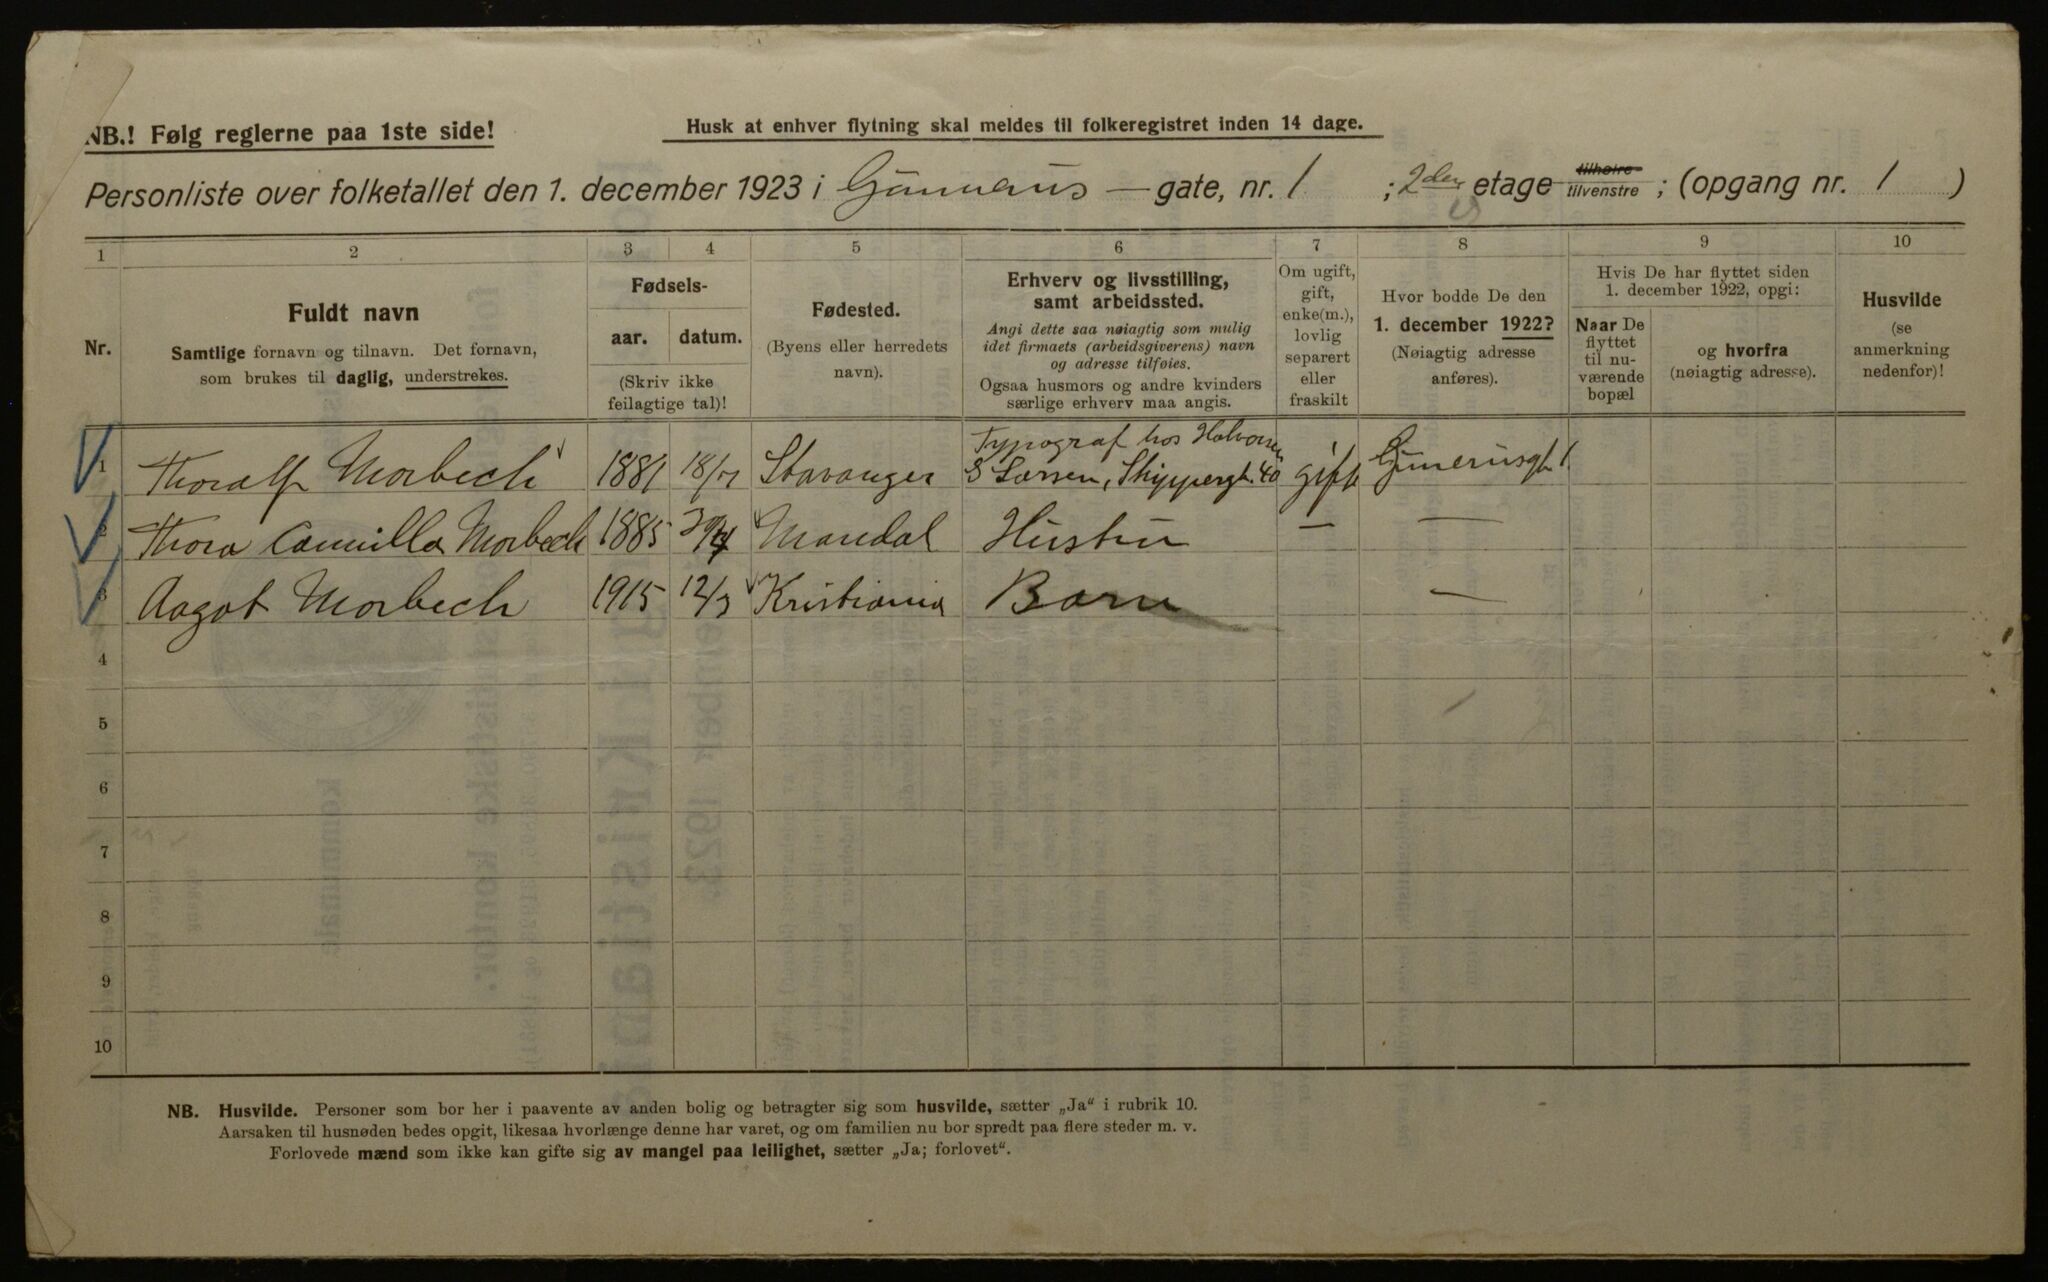 NB.! Følg reglerne paa 1ste side!
Husk at enhver flytning skal meldes til folkeregistret inden 14 dage.
Personliste over folketallet den 1. december 1923 i — gate, nr. 1 ; 2den etage tilhøire tilvenstre ; (opgang nr. 1 )
1 2 3 4 5 6 7 8 9 10
Nr.
Fuldt navn
Samtlige fornavn og tilnavn. Det fornavn,
som brukes til daglig, understrekes.
Fødsels-
aar. datum.
(Skriv ikke
feilagtige tal)!
Fødested.
(Byens eller herredets
navn).
Erhverv og livsstilling,
samt arbeidssted.
Angi dette saa nøiagtig som mulig
idet firmaets (arbeidsgiverens) navn
og adresse tilføies.
Ogsaa husmors og andre kvinders
særlige erhverv maa angis.
Om ugift,
gift,
enke(m.),
lovlig
separert
eller
fraskilt
Hvor bodde De den
1. december 1922?
(Nøiagtig adresse
anføres).
Hvis De har flyttet siden
1. december 1922, opgi:
Naar De
flyttet
til nu-
værende
bopæl
og hvorfra
(nøiagtig adresse).
Husvilde
(se
anmerkning
nedenfor)!
1 Thoralf Morbech 1881 Stavanger Typograf hos Halvorsen
& Larsen, Skippergt. 40 gift Gunerusgt 1.
2 Thora Camilla Morbech 1885 Mandal Hustru — —
3 Aagot Morbech 1915 12/3 Kristiania Barn —
4
5
6
7
8
9
10
NB. Husvilde. Personer som bor her i paavente av anden bolig og betragter sig som husvilde, sætter „Ja“ i rubrik 10.
Aarsaken til husnøden bedes opgit, likesaa hvorlænge denne har varet, og om familien nu bor spredt paa flere steder m. v.
Forlovede mænd som ikke kan gifte sig av mangel paa leilighet, sætter „Ja; forlovet“.